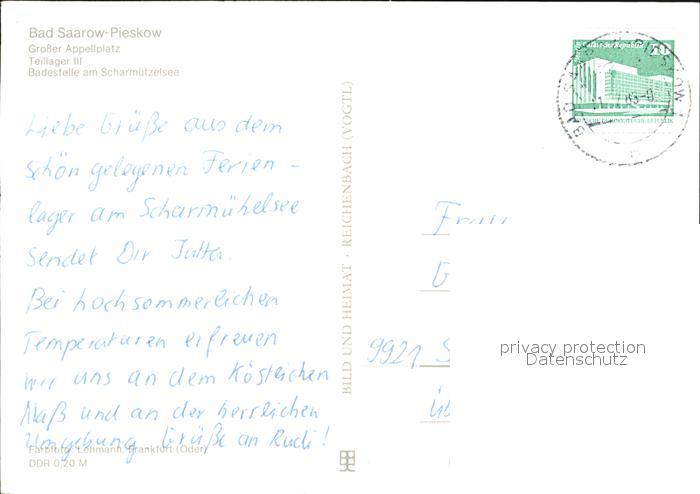 Bad Saarow-Pieskow
Großer Appellplatz
Teillager III
Badestelle am Scharmützelsee
Liebe Grüße aus dem
schön gelegenen Ferien-
lager am Scharmühelsee
sendet Dir Jutta.
Bei hochsommerlichen
Temperaturen erfreuen
wir uns an dem köstlichen
Naß und an der herrlichen
Umgebung. Grüße an Rudi!
Farbfoto: Lehmann, Frankfurt (Oder)
DDR 0,20 M
BILD UND HEIMAT · REICHENBACH (VOGTL)
Palast der Republik
20
BAD SAAROW-PIESKOW
Frau
G
9921 S
üb
privacy protection
Datenschutz